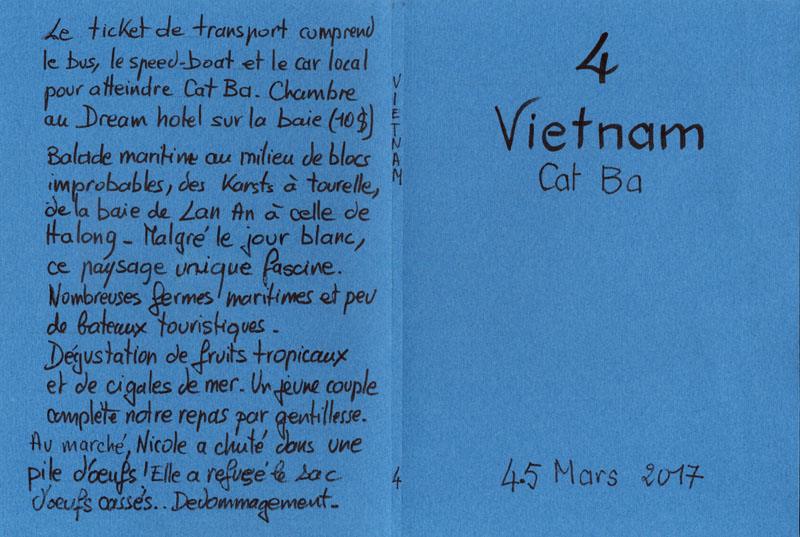 Le ticket de transport comprend
le bus, le speed-boat et le car local
pour atteindre Cat Ba. Chambre
au Dream hotel sur la baie (10$)
Balade maritime au milieu de blocs
improbables, des Karsts à tourelle,
de la baie de Lan An à celle de
Halong - Malgré le jour blanc,
ce paysage unique fascine.
Nombreuses fermes maritimes et peu
de bateaux touristiques -
Dégustation de fruits tropicaux
et de cigales de mer. Un jeune couple
complète notre repas par gentillesse.
Au marché, Nicole a chuté dans une
pile d'oeufs ! Elle a refusé le sac
d'oeufs cassés.. Dedommagement -
VIETNAM
4
4
Vietnam
Cat Ba
4.5 Mars 2017